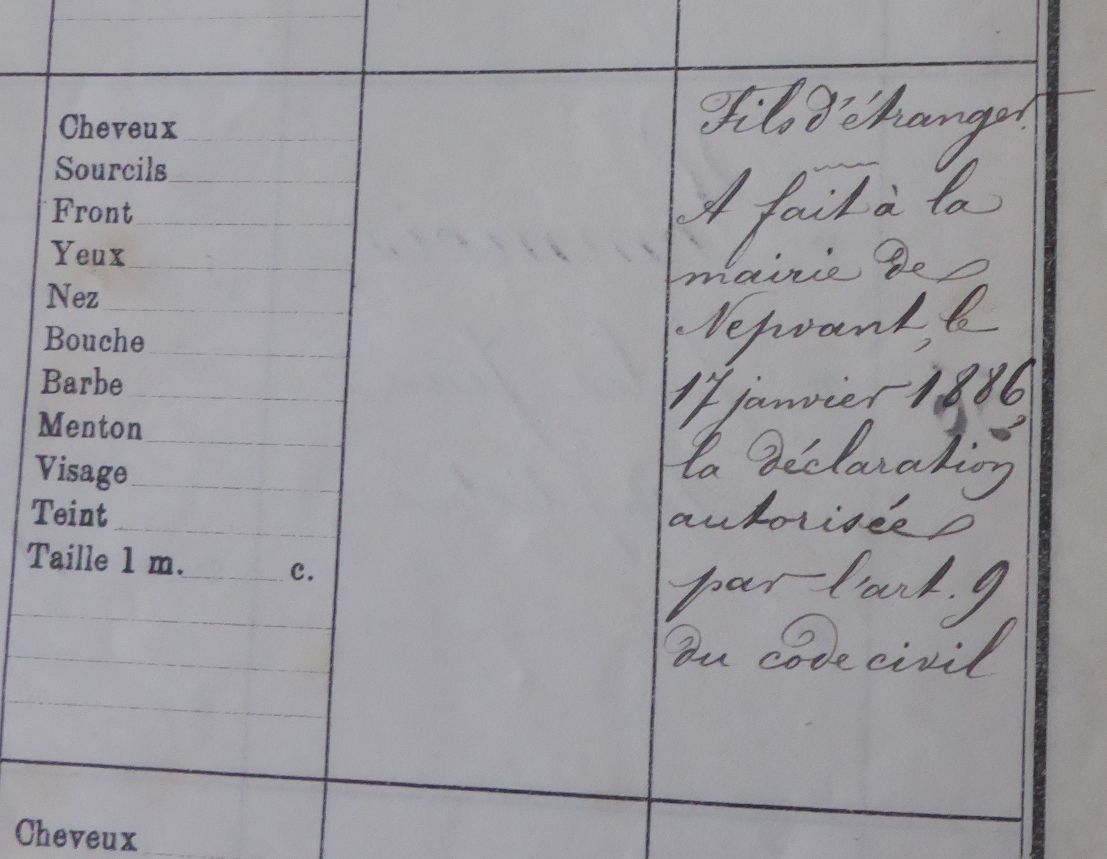 Cheveux
Sourcils
Front
Yeux
Nez
Bouche
Barbe
Menton
Visage
Teint
Taille 1 m. c.
Fils d'étranger.
A fait à la
mairie de
Nepvant, le
17 janvier 1886,
la déclaration
autorisée
par l'art. 9
du code civil
Cheveux